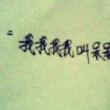 = 我我我我叫呆呆